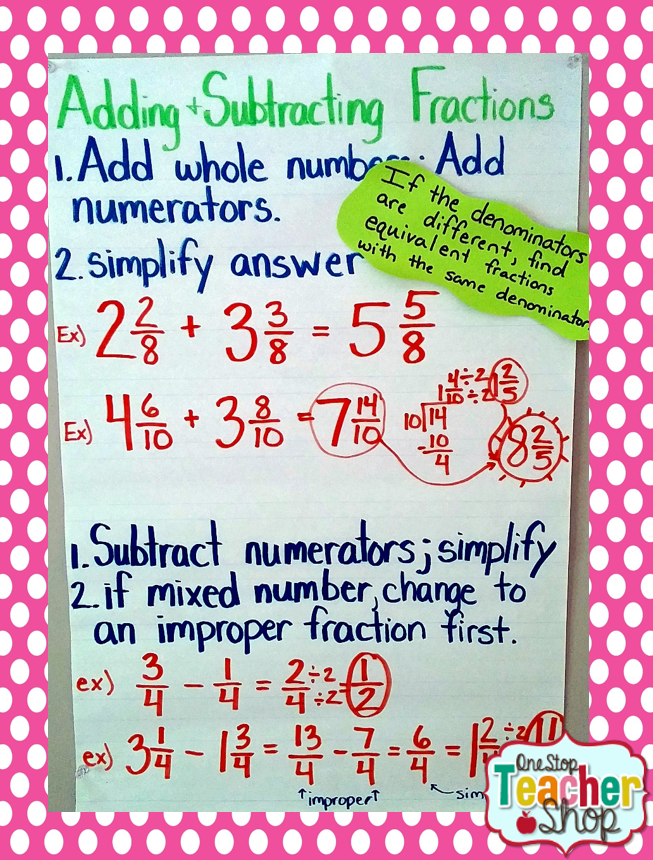 Adding + Subtracting Fractions
1. Add whole numbers; Add
numerators.
2. simplify answer
If the denominators
are different, find
equivalent fractions
with the same denominator
Ex) 2 2/8 + 3 3/8 = 5 5/8
Ex) 4 6/10 + 3 8/10 = 7 14/10
1 4/10 ÷2 ÷2 1 2/5
10 14
-10
4
8 2/5
1. Subtract numerators; simplify
2. if mixed number, change to
an improper fraction first.
ex) 3/4 - 1/4 = 2/4 ÷2 ÷2 = 1/2
ex) 3 1/4 - 1 3/4 = 13/4 - 7/4 = 6/4 = 1 2/ ÷2
↑improper↑
sim
One Stop
Teacher
Shop